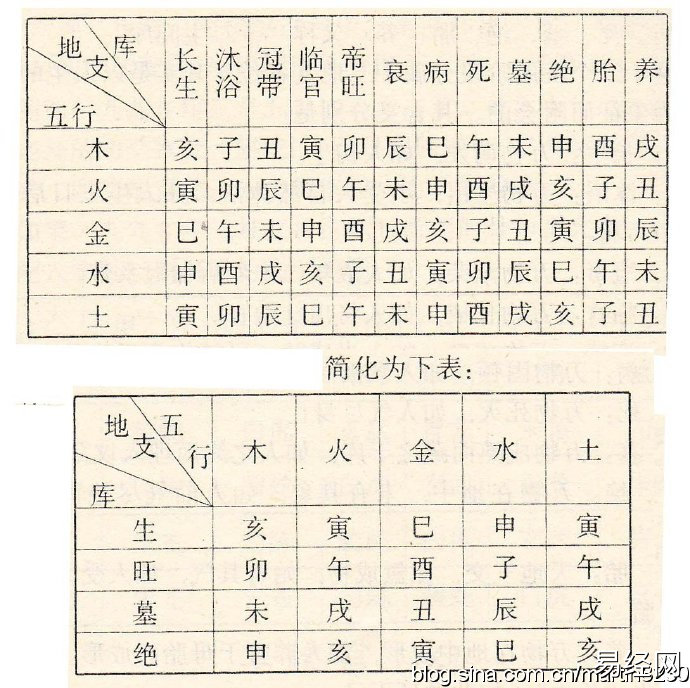 地支 库 五行 长生 沐浴 冠带 临官 帝旺 衰 病 死 墓 绝 胎 养
木 亥 子 丑 寅 卯 辰 巳 午 未 申 酉 戌
火 寅 卯 辰 巳 午 未 申 酉 戌 亥 子 丑
金 巳 午 未 申 酉 戌 亥 子 丑 寅 卯 辰
水 申 酉 戌 亥 子 丑 寅 卯 辰 巳 午 未
土 寅 卯 辰 巳 午 未 申 酉 戌 亥 子 丑
简化为下表：
地支 五行 库 木 火 金 水 土
生 亥 寅 巳 申 寅
旺 卯 午 酉 子 午
墓 未 戌 丑 辰 戌
绝 申 亥 寅 巳 亥
易经网
blog.sina.com.cn/martin9230